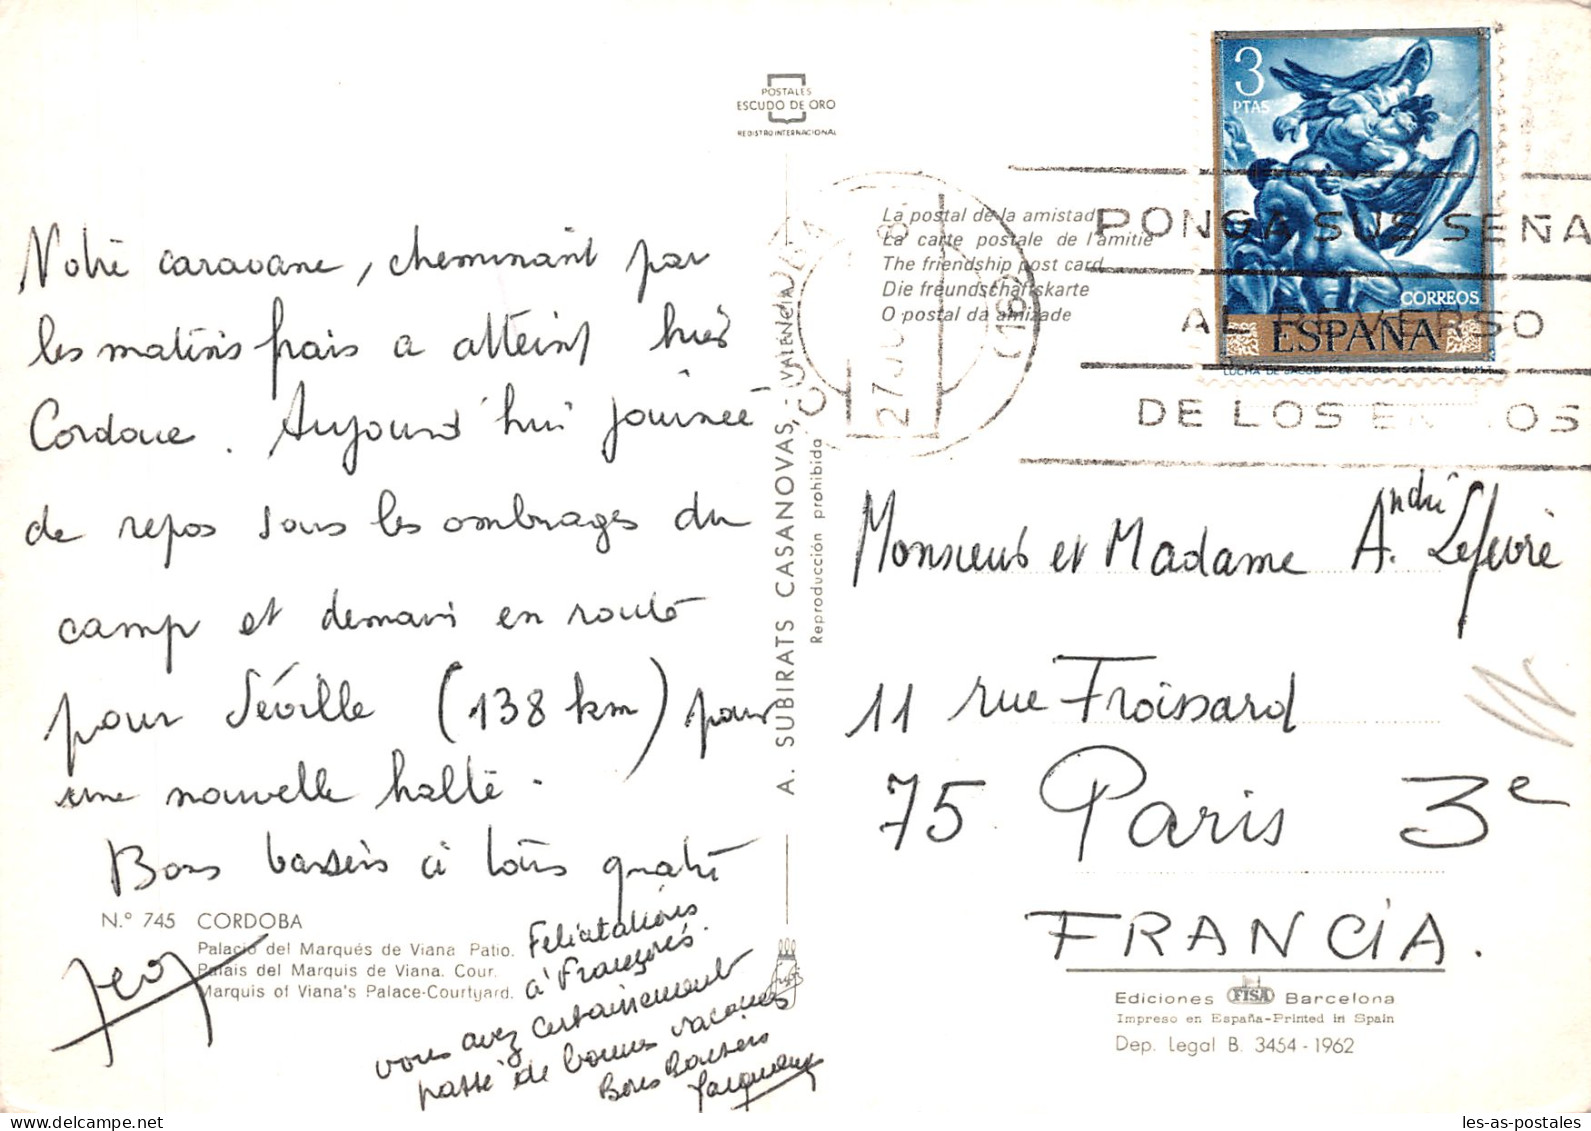 POSTALES
ESCUDO DE ORO
REGISTRO INTERNACIONAL
Notre caravane, cheminant par
les matins frais a atteint hier
Cordoue. Aujourd'hui journée
de repos sous les ombrages du
camp et demain en route
pour Séville (138 km) pour
une nouvelle halte.
Bons baisers à tous quatre
N.º 745 CORDOBA
Palacio del Marqués de Viana. Patio.
Palais del Marquis de Viana. Cour.
Marquis of Viana's Palace-Courtyard.
Felicitations
à François.
vous avez certainement
passé de bonnes vacances
Bons Baisers
Jacqueline
A. SUBIRATS CASANOVAS, - VALENCIA
Reproducción prohibida
La postal de la amistad
La carte postale de l'amitié
The friendship post card
Die freundschaftskarte
O postal da amizade
27
(18)
3
PTAS
CORREOS
ESPAÑA
PONGA SUS SEÑA
AL REVERSO
DE LOS EN OS
Monsieur et Madame André Lefevre
11 rue Froissard
75 Paris 3e
FRANCIA.
Ediciones FISA Barcelona
Impreso en España-Printed in Spain
Dep. Legal B. 3454-1962
les-as-postales